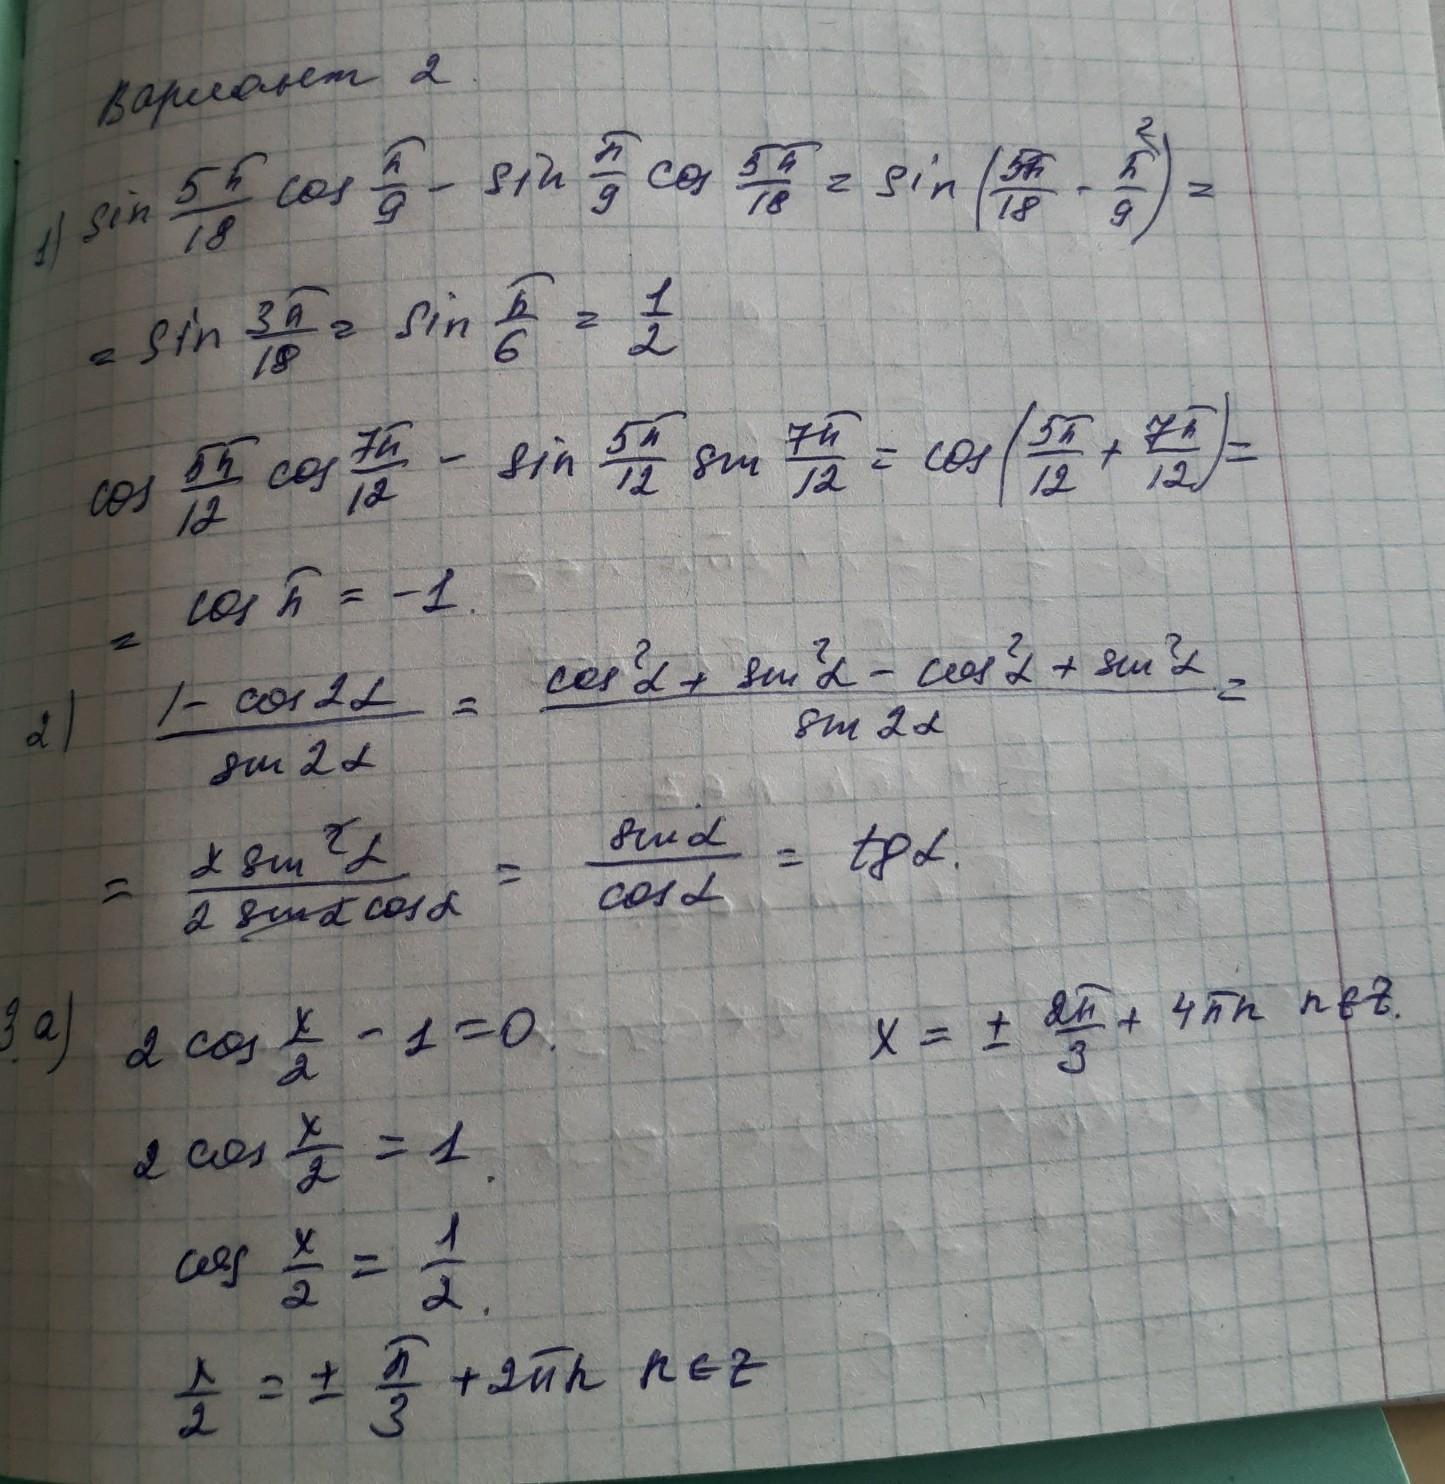 Вариант 2.
1) sin 5π/18 cos π/9 - sin π/9 cos 5π/18 = sin (5π/18 - π/9 ²) =
= sin 3π/18 = sin π/6 = 1/2
cos 5π/12 cos 7π/12 - sin 5π/12 sin 7π/12 = cos (5π/12 + 7π/12) =
= cos π = -1.
2) (1 - cos 2α)/(sin 2α) = (cos²α + sin²α - cos²α + sin²α)/(sin 2α) =
= (2 sin²α)/(2 sin α cos α) = (sin α)/(cos α) = tg α.
3. а) 2 cos x/2 - 1 = 0.
2 cos x/2 = 1.
cos x/2 = 1/2.
x/2 = ± π/3 + 2πn n ∈ Z
x = ± 2π/3 + 4πn n ∈ Z.